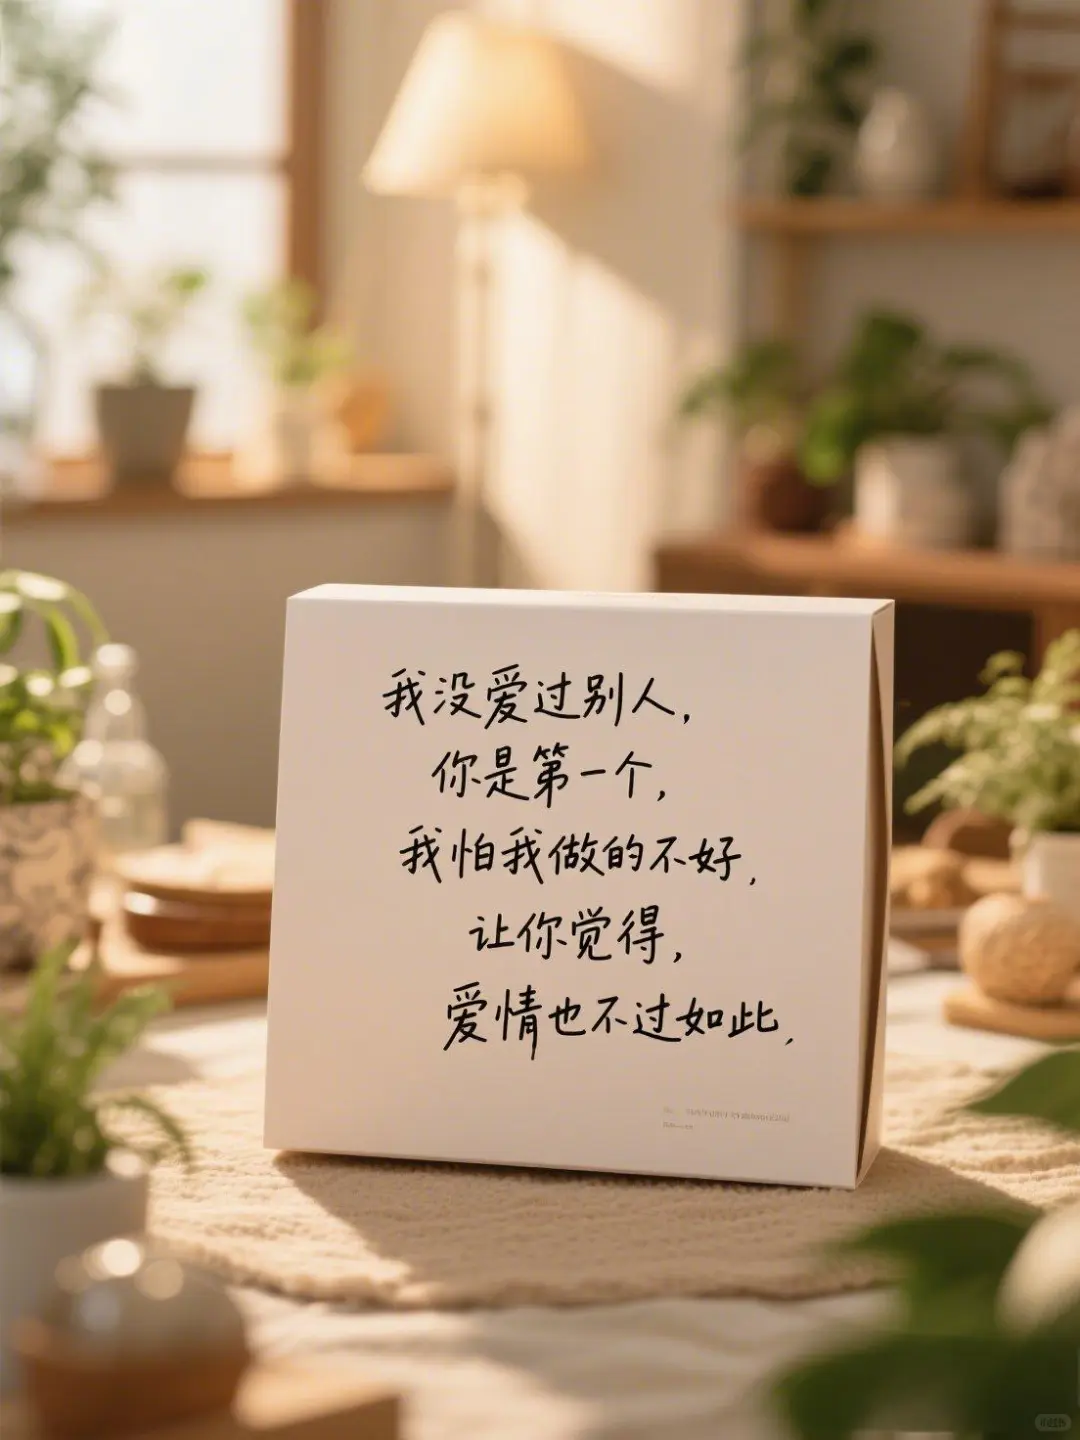 我没爱过别人,
你是第一个,
我怕我做的不好,
让你觉得,
爱情也不过如此,